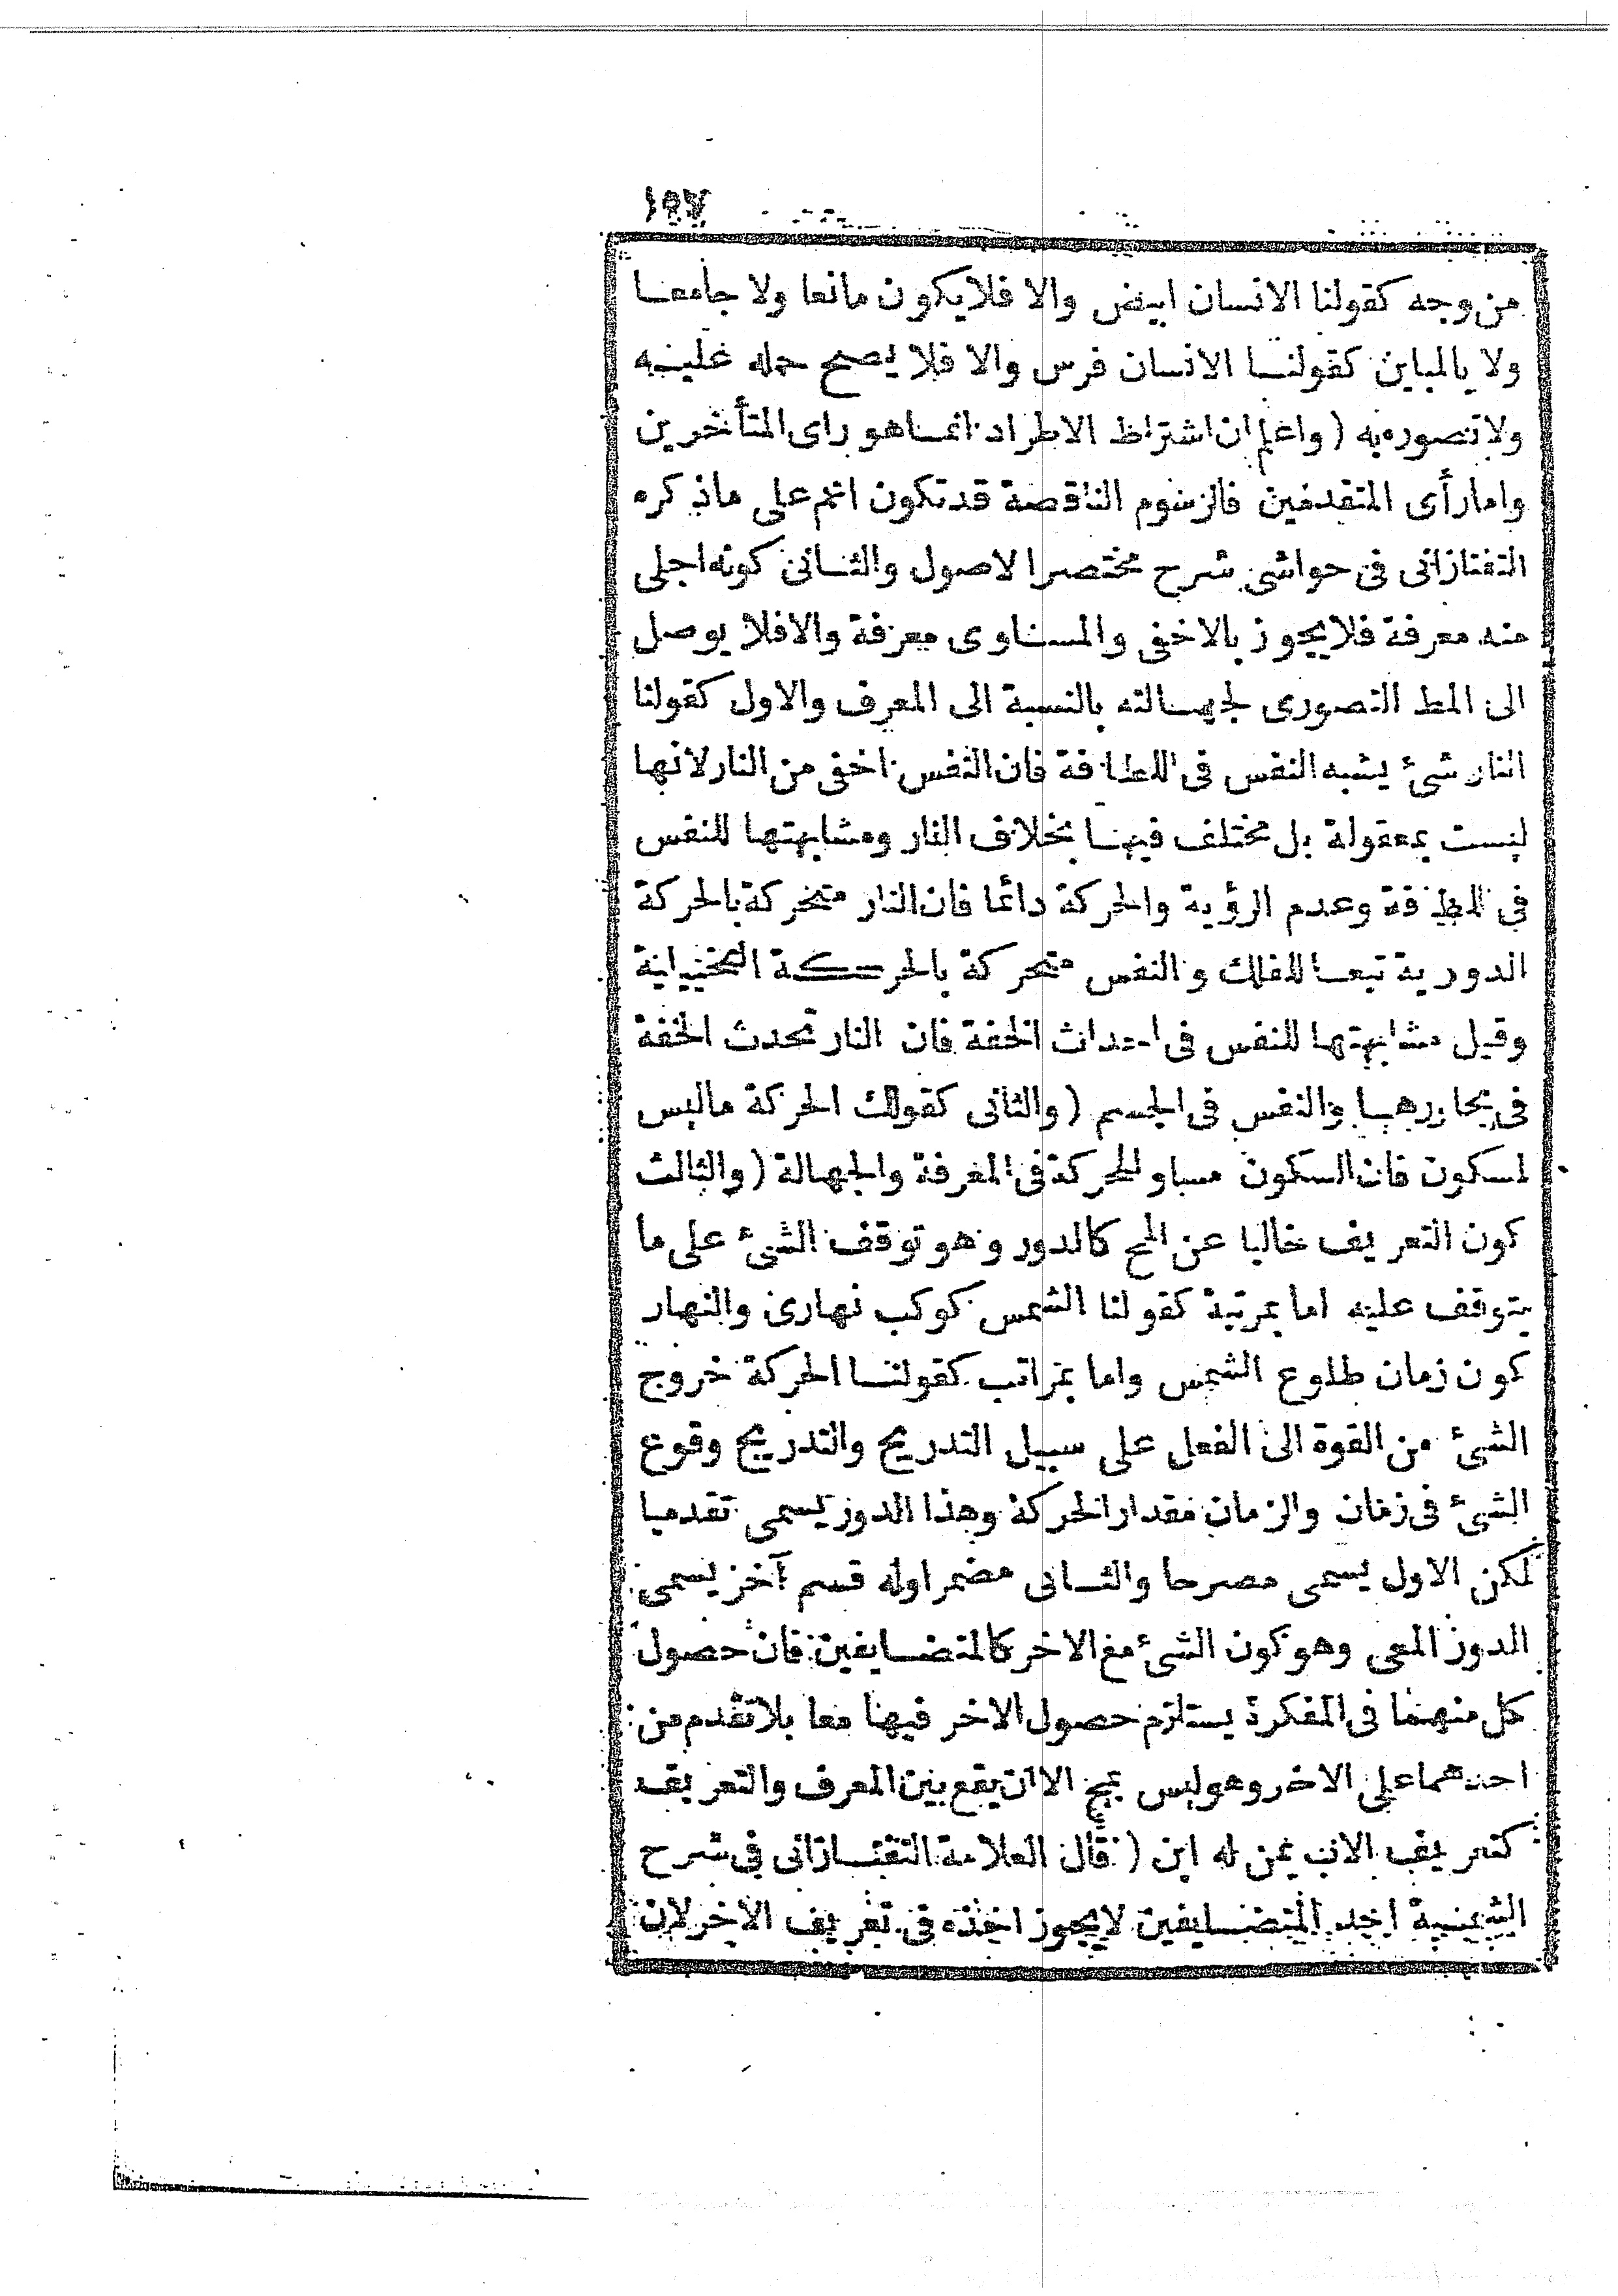 ١٥٧
من وجه كقولنا الانسان ابيض والا فلايكون مانعا ولا جامعا
ولا بالمباين كقولنا الانسان فرس والا فلا يصح حمله عليه
ولا تصوره به (واعلم ان اشتراط الاطراد انما هو راى المتأخرين
واما رأى المتقدمين فالرسوم الناقصة قد تكون اتم على ماذكره
التفتازانى فى حواشى شرح مختصر الاصول والثانى كونه اجلى
منه معرفة فلايجوز بالاخفى والمساوى معرفة والا فلا يوصل
الى المط التصورى لجهالته بالنسبة الى المعرف والاول كقولنا
النار شئ يشبه النفس فى اللطافة فان النفس اخفى من النار لانها
ليست بمعقولة بل مختلف فيها بخلاف النار ومشابهتها للنفس
فى اللطافة وعدم الرؤية والحركة دائما فان النار متحركة بالحركة
الدورية تبعا للفلك والنفس متحركة بالحركة التخييلية
وقيل مشابهتها للنفس فى احداث الخفة فان النار تحدث الخفة
فى مجاورها والنفس فى الجسم (والثانى كقولك الحركة ماليس
لسكون فان السكون مساو للحركة فى المعرفة والجهالة (والثالث
كون التعريف خاليا عن المح كالدور وهو توقف الشئ على ما
يتوقف عليه اما بمرتبة كقولنا الشمس كوكب نهارى والنهار
كون زمان طلوع الشمس واما بمراتب كقولنا الحركة خروج
الشئ من القوة الى الفعل على سبيل التدريج والتدريج وقوع
الشئ فى زمان والزمان مقدار الحركة وهذا الدور يسمى تقدميا
لكن الاول يسمى مصرحا والثانى مضمرا وله قسم آخر يسمى
الدور المعى وهو كون الشئ مع الاخر كالمتضايفين فان حصول
كل منهما فى المفكرة يستلزم حصول الاخر فيها معا بلا تقدم من
احدهما على الاخر وهو ليس بمح الا ان يقع بين المعرف والتعريف
كتعريف الاب بمن له ابن (قال العلامة التفتازانى فى شرح
الشمسية احد المتضايفين لايجوز اخذه فى تعريف الاخر لان